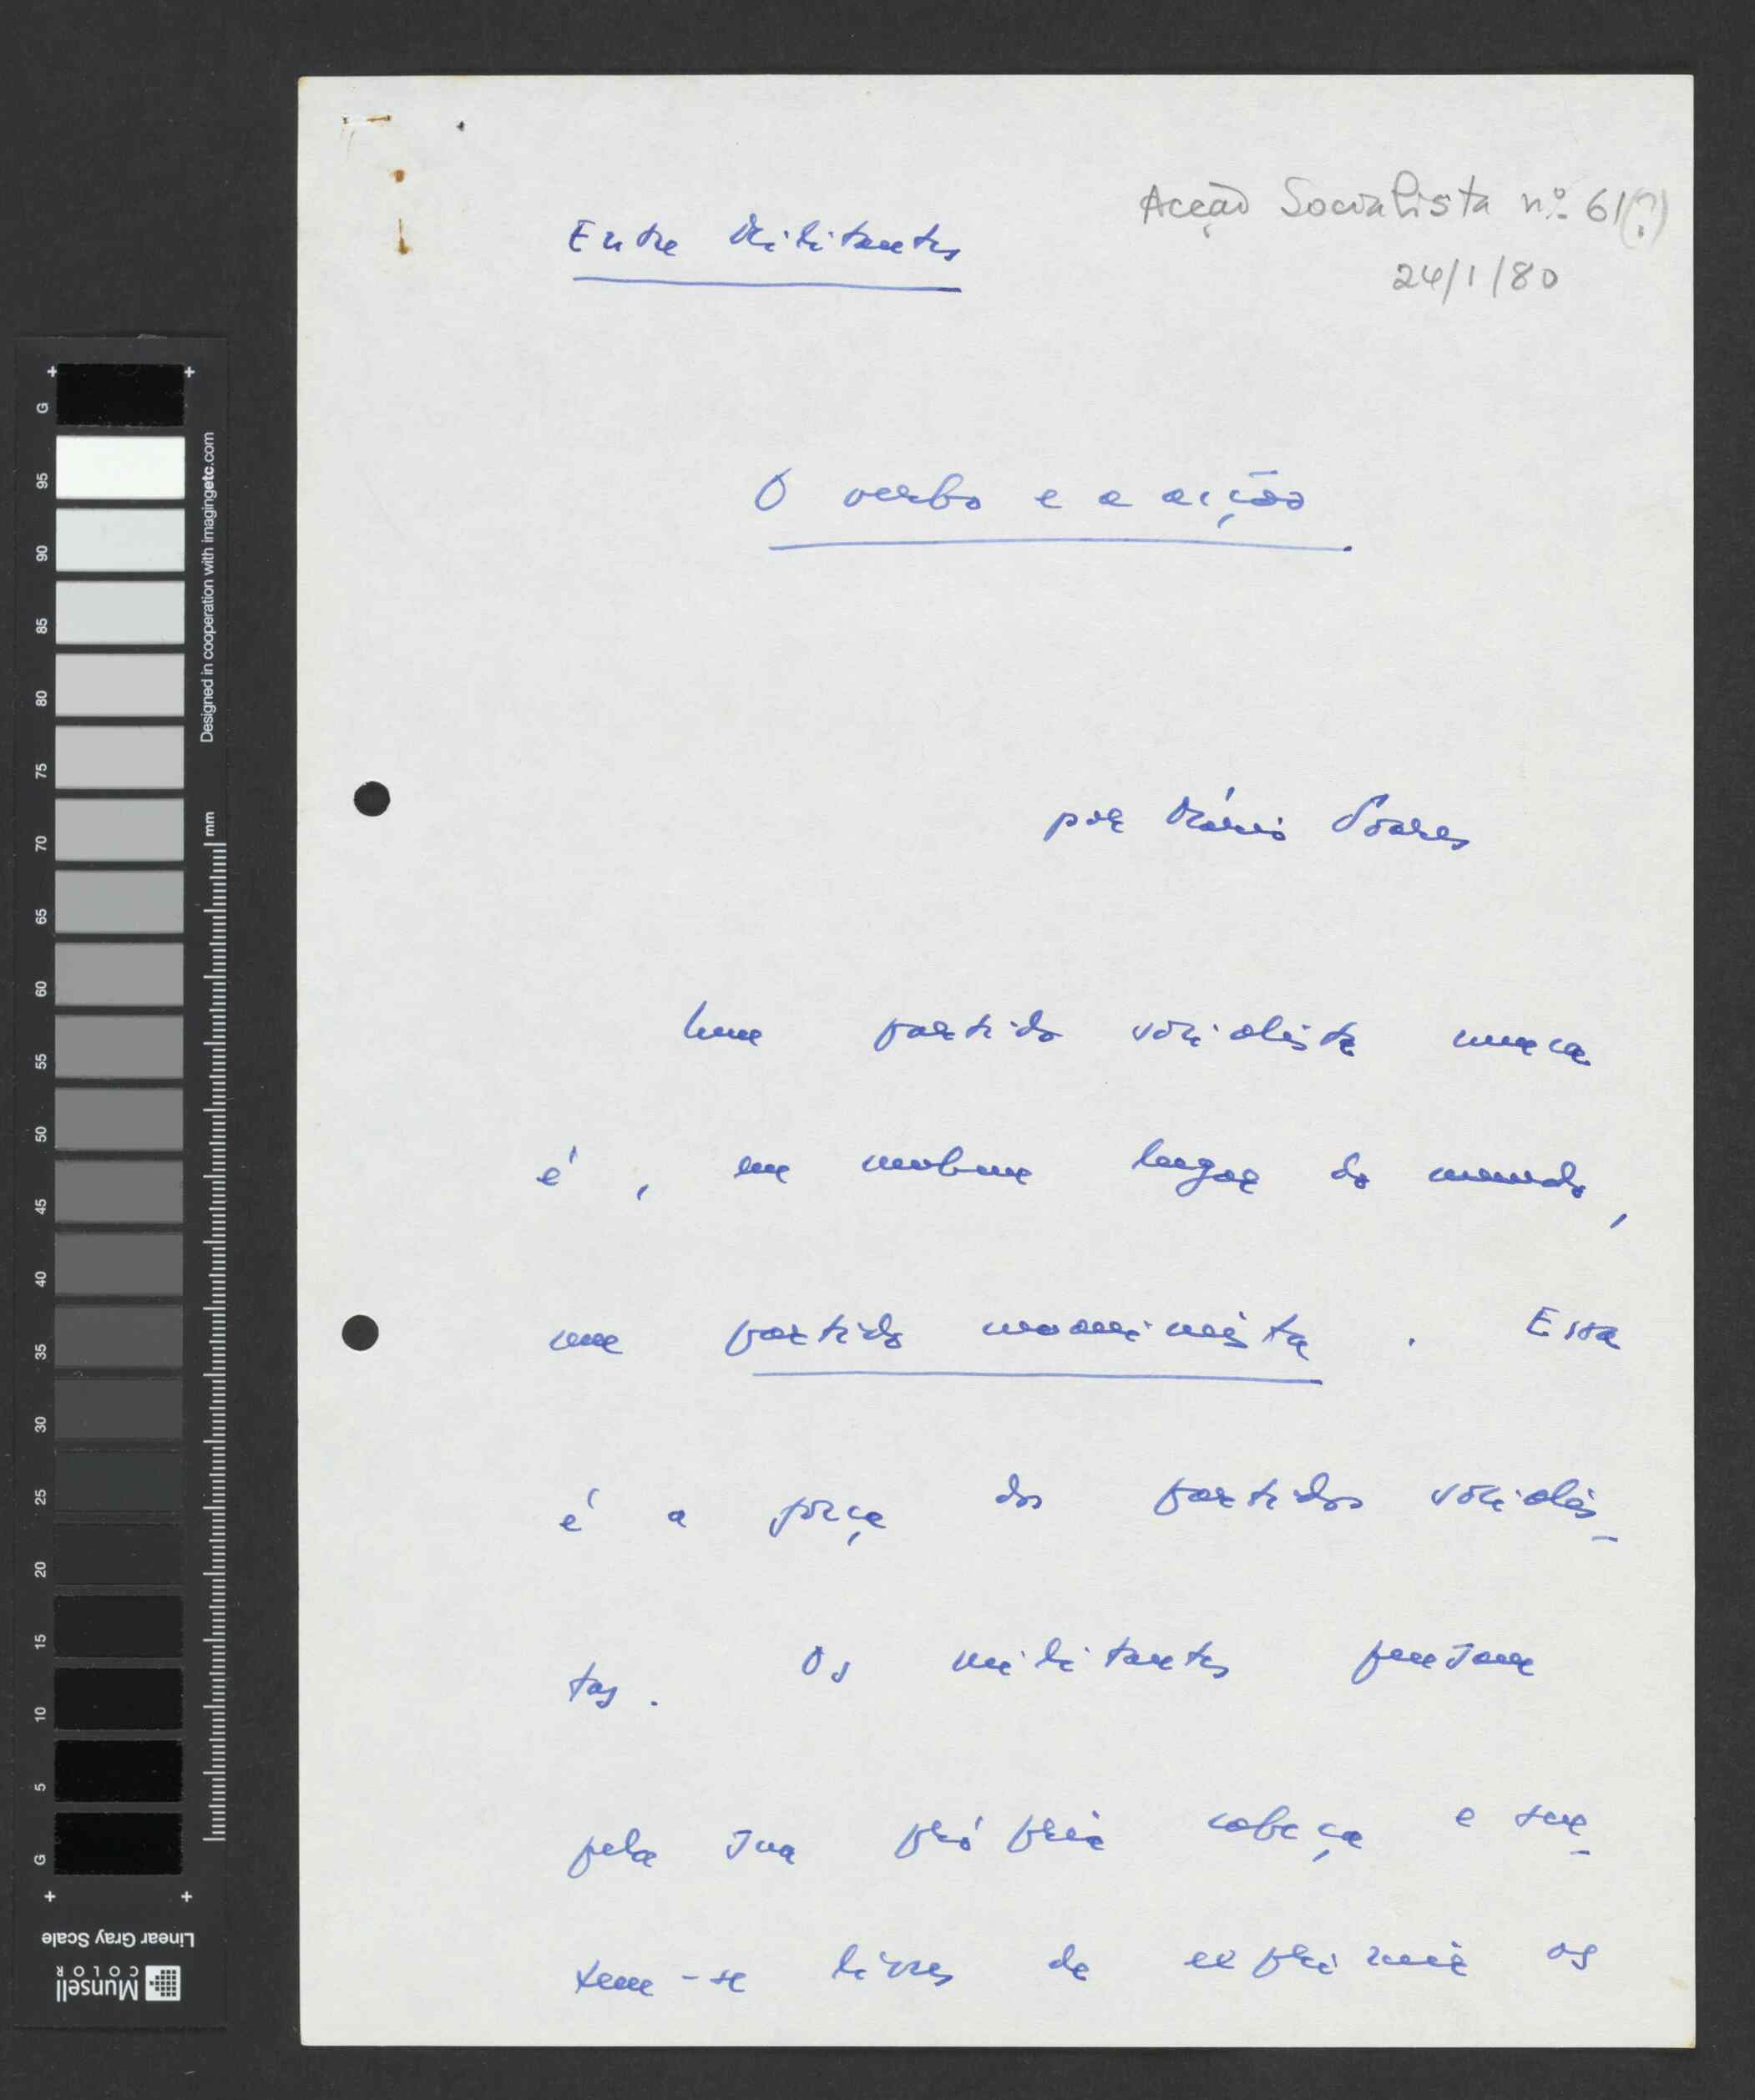 Acção Socialista nº 61(?)
24/1/80
Entre Militantes
O verbo e a acção
por Mário Soares
Um partido socialista nunca
é, em nenhum lugar do mundo,
um partido unanimista. Essa
é a força dos partidos socialis-
tas. Os militantes pensam
pela sua própria cabeça e sen-
tem-se livres de exprimir os
G
95
90
85
80
75
70
65
60
55
50
45
40
35
30
25
20
15
10
5
G
Designed in cooperation with imagingetc.com
mm
Linear Gray Scale
Munsell
COLOR